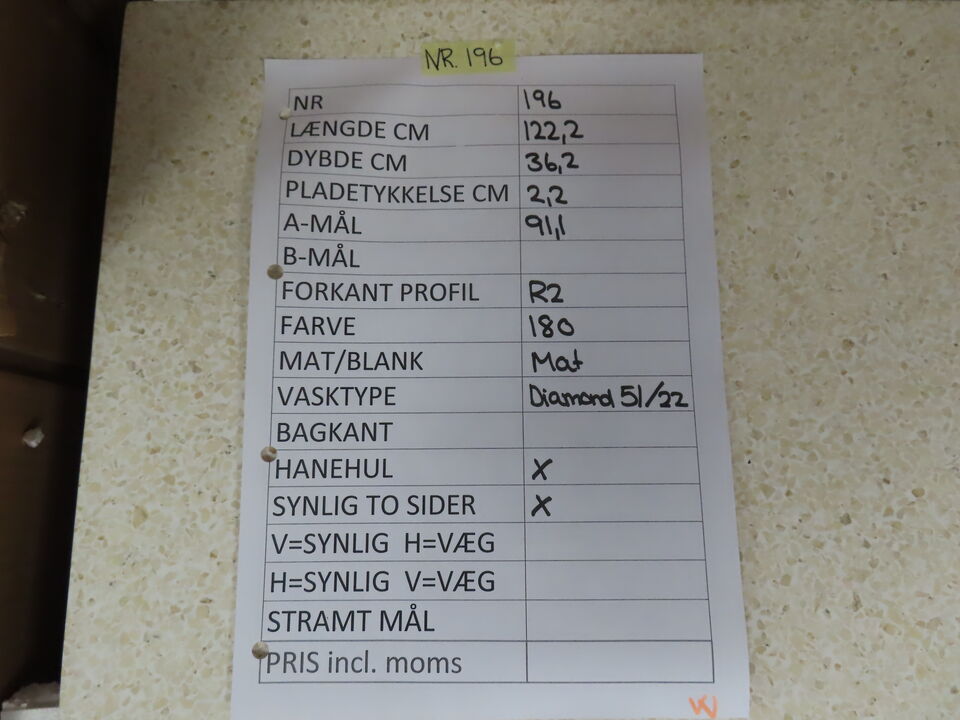 NR. 196
NR 196
LÆNGDE CM 122,2
DYBDE CM 36,2
PLADETYKKELSE CM 2,2
A-MÅL 91,1
B-MÅL
FORKANT PROFIL R2
FARVE 180
MAT/BLANK Mat
VASKTYPE Diamond 51/22
BAGKANT
HANEHUL X
SYNLIG TO SIDER X
V=SYNLIG H=VÆG
H=SYNLIG V=VÆG
STRAMT MÅL
PRIS incl. moms